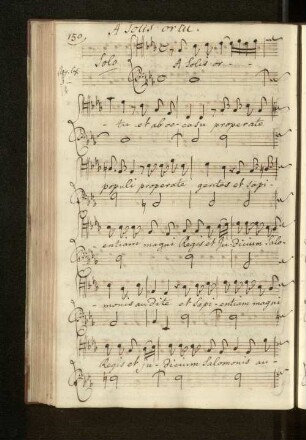 130.
A Solis ortu.
Solo
A Solis or - -
- tu et ab occasu properate
populi properate gentes et sapi-
entiam magni Regis et judicium Salo-
- monis audite et sapientiam magni
Regis et judicium Salomonis au-